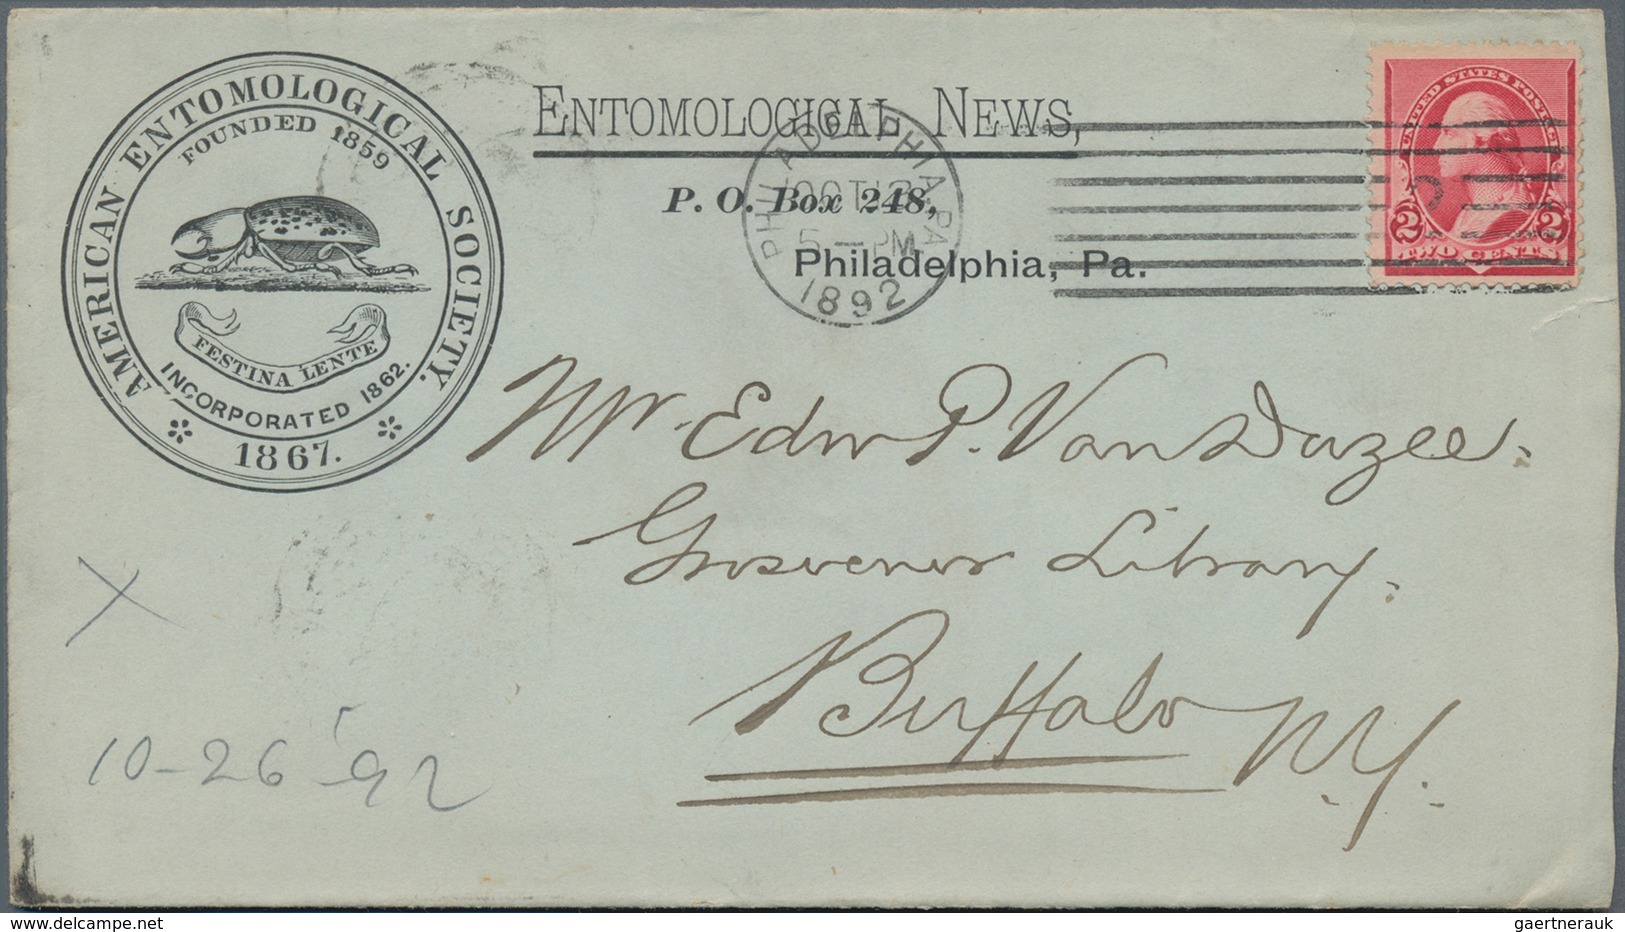 AMERICAN ENTOMOLOGICAL SOCIETY.
FOUNDED 1859
FESTINA LENTE
INCORPORATED 1862.
1867.
ENTOMOLOGICAL NEWS,
P. O. Box 248,
Philadelphia, Pa.
PHILADELPHIA, PA
5 — PM
1892
UNITED STATES POSTAGE
2 2
TWO CENTS
Mr. Edw P. Van Duzee.
Grosvenor Library.
Buffalo
N.Y.
X
10-26-'92
www.delcampe.net
gaertnerauk